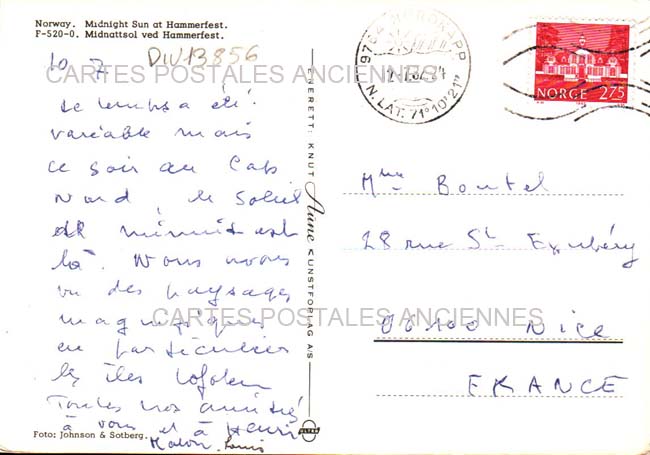 Norway. Midnight Sun at Hammerfest.
F-520-0. Midnattsol ved Hammerfest.
DIV13856
10 7
CARTES POSTALES ANCIENNES
Le temps a été
variable mais
ce soir au Cap
Nord, le soleil
de minuit est
là. Nous avons
vu des paysages
magnifiques
en particulier
les îles Lofoten
Toutes nos amitiés
à vous et à Henri
Louis
Foto: Johnson & Sotberg.
ENERETT: KNUT Aune KUNSTFORLAG A/S
9764 NORDKAPP
N. LAT. 71°10'21"
NORGE 275
Boutel
28 rue St Exupéry
CARTES POSTALES ANCIENNES
06100 NICE
FRANCE